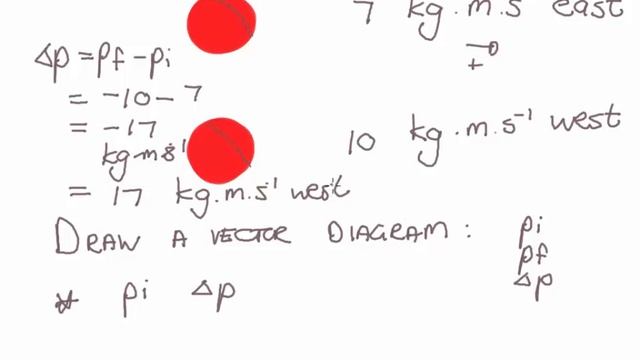 7 kg.m.s east
+
Δp = pf - pi
= -10 - 7
= -17
kg.m.s⁻¹
10 kg.m.s⁻¹ west
= 17 kg.m.s⁻¹ west
DRAW A VECTOR DIAGRAM : pi
pf
Δp
* pi Δp